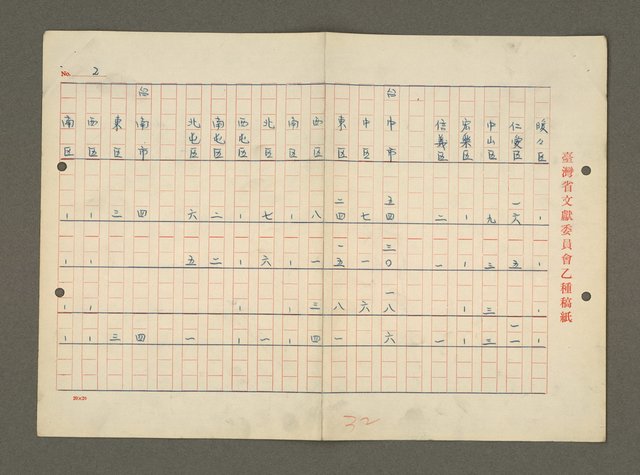 臺灣省文獻委員會乙種稿紙
No. 2
暖々区 | | |
仁愛区 一六 五 一一
中山区 九 三 三 三
安樂区 | | | |
信義区 二 一 一
台中市 五四 三〇 一八 六
中区 七 一 六
東区 二四 一五 八 一
西区 八 一 三 四
南区 | | | |
北区 七 六 | |
西屯区 | | | |
南屯区 二 二
北屯区 六 五 一
台南市 四 四
東区 三 三
西区 | | | |
南区 | | | |
20×20
32